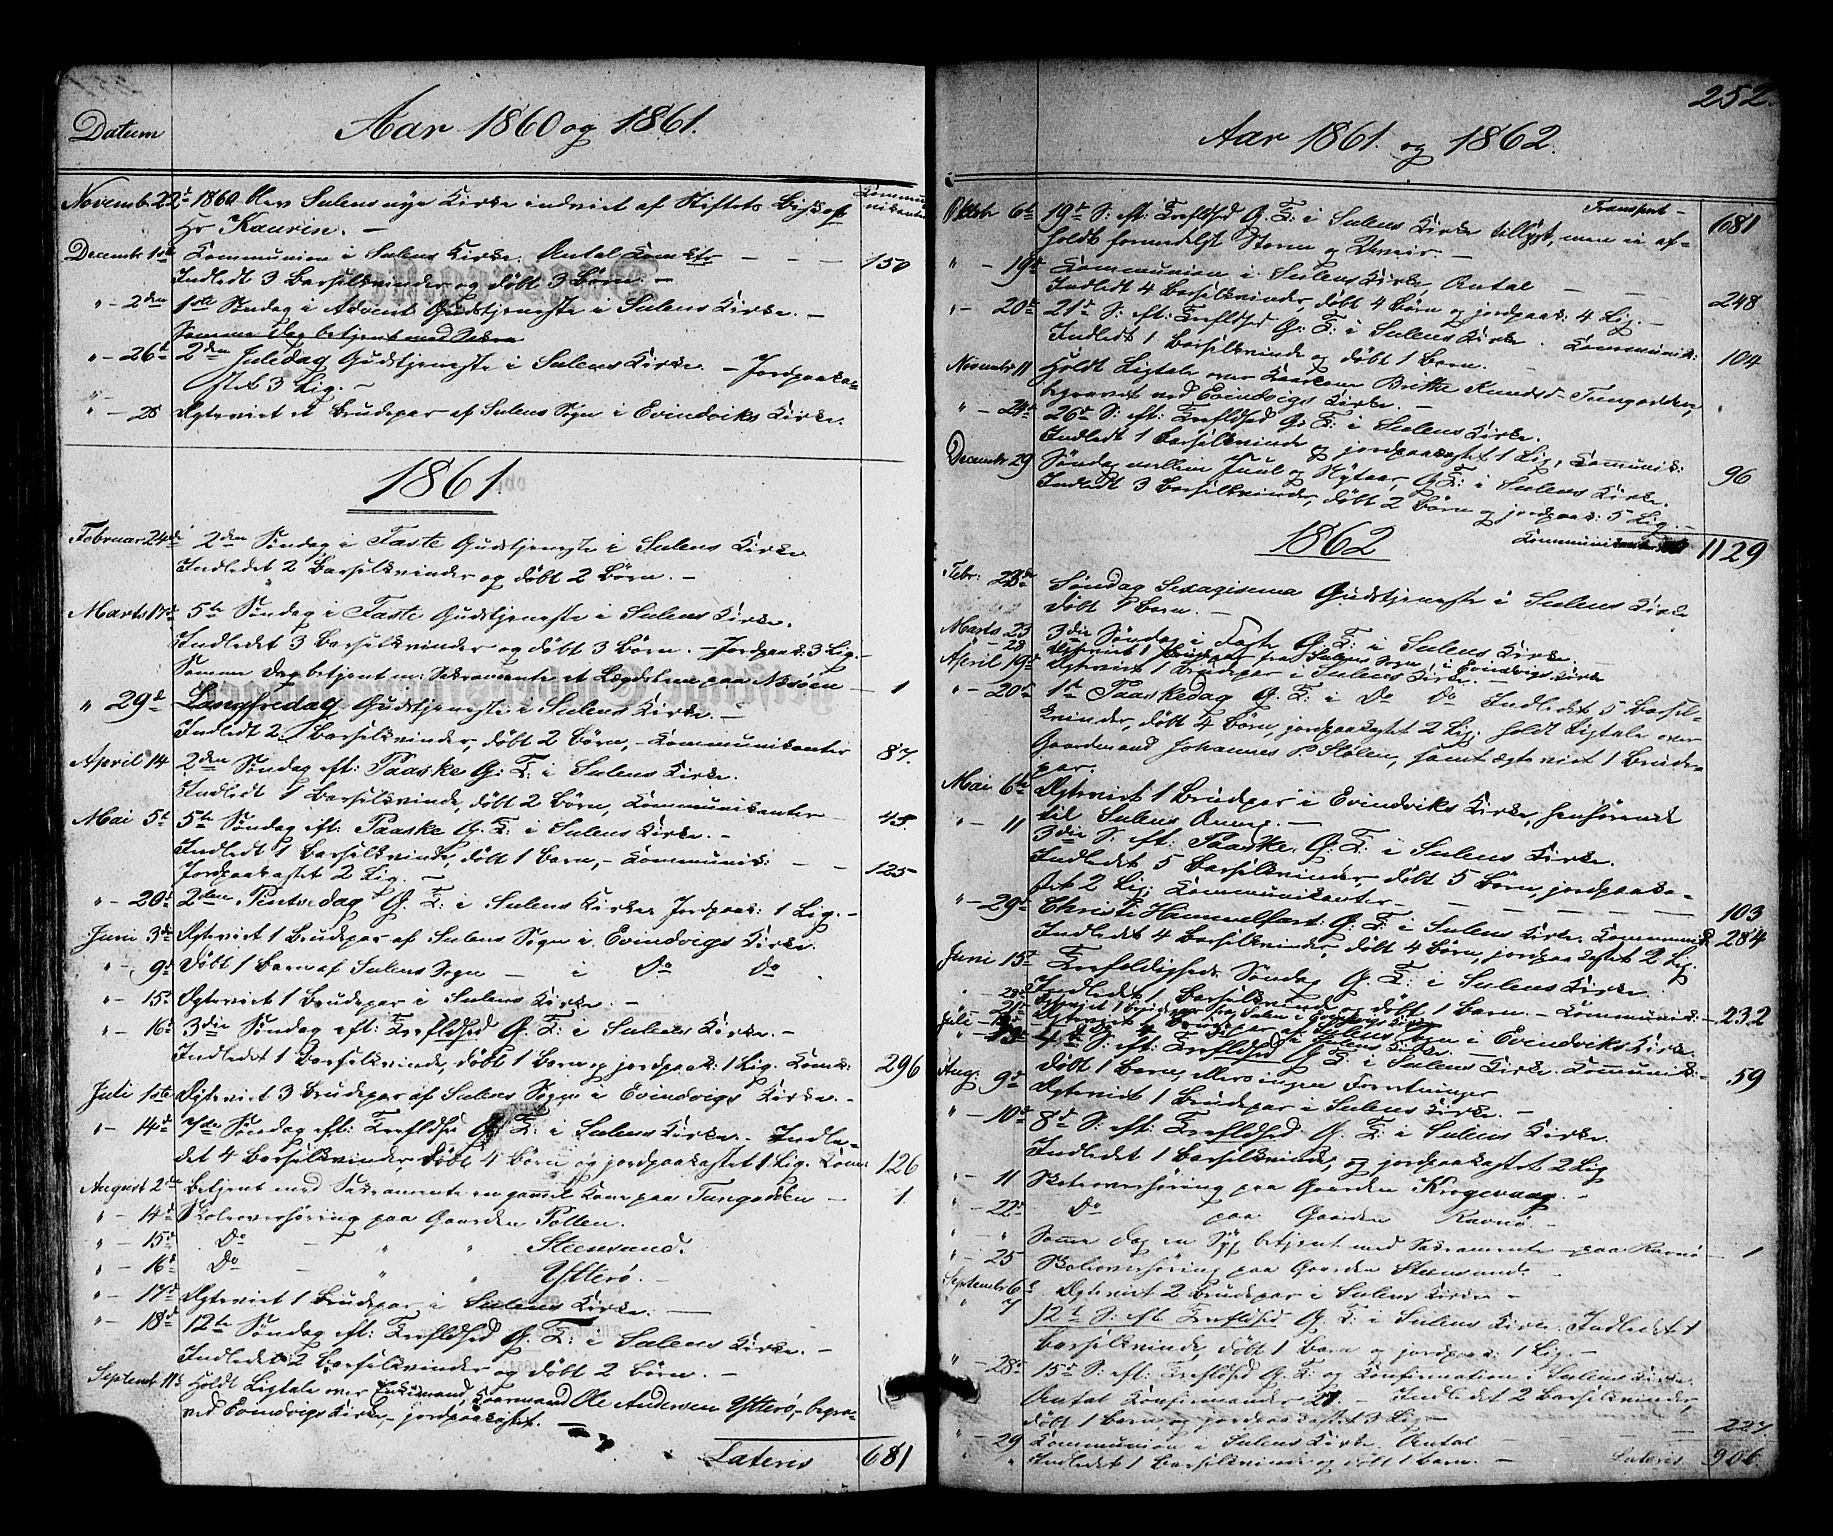 Datum
Aar 1860 og 1861.
Kommunikanter
Novemb. 22d 1860 Blev Sulens nye Kirke indviet af Stiftets Biskop
Hr Kaurin. –
Decembr 1ste Kommunion i Sulens Kirke. Antal Komktr – – – 150
Indledt 3 Barselkvinder og døbt 3 Børn. –
" – 2den 1ste Søndag i Advent Gudstjeneste i Sulens Kirke. –
Samme Dag betjent med Sakra
" – 26d 2den Juledag Gudstjeneste i Sulens Kirke. – Jordpaaka-
stet 3 Lig. –
" – 28 Ægteviet et Brudepar af Sulens Sogn i Evindviks Kirke.
1861
Februar 24de 2den Søndag i Faste Gudstjeneste i Sulens Kirke.
Indledet 2 Barselkvinder og døbt 2 Børn. –
Marts 17de 5te Søndag i Faste Gudstjeneste i Sulens Kirke.
Indledet 3 Barselkvinder og døbt 3 Børn. – Jordpaak: 3 Lig. –
Samme Dag betjent m: Sakramente et Lægdslem paa Nesøen – 1
" 29d Langfredag Gudstjeneste i Sulens Kirke. –
Indledt 2 Barselkvinder, døbt 2 Børn, – Kommunikanter 87.
April 14 2den Søndag eft: Paaske G: T: i Sulens Kirke.
Indledt 1 Barselkvinde, døbt 2 Børn, Kommunikanter – 45.
Mai 5te 5te Søndag eft: Paaske G: T: i Sulens Kirke. –
Indledt 1 Barselkvinde, døbt 1 Barn, – Kommunik: – – 125
Jordpaakastet 2 Lig. –
" – 20d 2den Pintsedag G. T: i Sulens Kirke Jordpaak: 1 Lig. –
Juni 3de Ægteviet 1 Brudepar af Sulens Sogn i Evindvigs Kirke.
" – 9d Døbt 1 Barn af Sulens Sogn – i Do Do
" – 15d Ægteviet 1 Brudepar i Sulens Kirke. –
" – 16d 3die Søndag eft: Trefldhed G: T: i Sulens Kirke. –
Indledet 1 Barselkvinde, døbt 1 Barn og jordpaak: 1 Lig. Komk: 296
Juli 1ste Ægteviet 3 Brudepar af Sulens Sogn i Evindvigs Kirke. –
" – 14d 7de Søndag eft: Trefldhed G: T: i Sulens Kirke. Indle-
det 4 Barselkvinder, døbt 4 Børn og jordpaakastet 1 Lig. Kom: 126
August 2de Betjent med Sakramente en gammel Kone paa Tungodden – 1
" – 14d Skoleoverhøring paa Gaarden Pollen.
" – 15d Do " " Steensund.
" – 16d Do " " Ytterø. –
" – 17d Ægteviet 1 Brudepar i Sulens Kirke. –
" – 18d 12te Søndag eft: Trefldhed G: T: i Sulens Kirke. –
Indledet 2 Barselkvinder og døbt 2 Børn. –
Septemb 11te Holdt Ligtale over Enkemand, Gaarmand Ole Andersen Ytterø, – begra-
ved Evindvigs Kirke, – jordpaakastet.
Lateris 681
252.
Aar 1861. og 1862.
Transport –
Oktobr 6te 19de S: eft: Trefldhed G. T: i Sulens Kirke tillyst, men ei af- 681
holdt formedelst Storm og Uveir. –
" – 19d Kommunion i Sulens Kirke, Antal – – – 248
Indledt 4 Barselkvinder, døbt 4 Børn og jordpaak: 4 Lig. –
" – 20d 21d S: eft: Trefldhed G: T: i Sulens Kirke. Kommunik: 104
Indledt 1 Barselkvinde og døbt 1 Barn. –
Novembr 11 Holdt Ligtale over Brithe Knudsd. Tungodden,
begravet ved Evindvigs Kirke. –
" – 24d 26d S: eft: Trefldhed G: T: i Sulens Kirke.
Indledt 1 Barselkvinde og jordpaakastet 1 Lig, Kommunik: 96
Decembr 29 Søndag mellem Juul og Nytaar, G: T: i Sulens Kirke.
Indledt 3 Barselkvinder, døbt 2 Børn og jordpaak: 5 Lig. –
Kommunikanter 1129
1862
Febr: 23de Søndag Sexagisema Gudstjeneste i Sulens Kirke
døbt 1 Barn. –
Marts 23 3die Søndag i Faste G: T: i Sulens Kirke
" – 28 Ægteviet 1 Brudepar fra Sulens Sogn i Evindvigs Kirke
April 19d Ægteviet 1 Brudepar i Sulens Kirke. –
" – 20d 1st Paaskedag G. T: i Do Do Indledet 5 Barsel-
kvinder, døbt 4 Børn, jordpaakastet 2 Lig: holdt Ligtale over
Gaardmand Johannes P. Stølen, samt ægteviet 1 Brude-
par.
Mai 6te Ægteviet 1 Brudepar i Evindviks Kirke, henhørende
til Sulens Annex. –
" – 11 3die S: eft: Paaske. G: T: i Sulens Kirke.
Indledet 5 Barselkvinder, døbt 5 Børn, jordpaaka-
stet 2 Lig; Kommunikanter – – – 103
" – 29d Christi Himmelfart G: T: i Sulens Kirke. Kommunik. 284
Indledet 4 Barselkvinder, døbt 4 Børn, jordpaakastet 2 Lig.
Juni 15d Trefoldigheds Søndag G. T: i Sulens Kirke.
Indledet 1 Barselkvinde og døbt 1 Barn. – Kommunik: – 232
Juli Sulens Sogn i Evindviks Kirke.
4de S: eft: Trefldhed G: T: i Sulens Kirke. Kommunik: – 59
døbt 1 Barn,
Aug: 9d Ægteviet 1 Brudepar i Sulens Kirke. –
" – 10d 8d S: eft: Trefldhed G: T: i Sulens Kirke
Indledt 1 Barselkvinde, og jordpaakastet 2 Lig
" – 11 Skoleoverhøring paa Gaarden Krogevaag. –
" – 22d Do paa Gaarden Ravnø –
" " Samme Dag en Syg betjent med Sakramente – paa Ravnø – 1
" – 25 Skoleoverhøring paa Gaarden Steensund. –
Septembr 6te Ægteviet 2 Brudepar i Sulens Kirke –
" 7 12te S: eft. Trefldhed G: T: i Sulens Kirke. Indledet 1
Barselkvinde, døbt 1 Barn og jordpaak: 1 Lig. –
" – 28d 15d S: eft: Trefldhed G: T: og Konfirmation i Sulens Kirke.
Antal Konfirmander 21. – Indledet 2 Barselkvinder,
døbt 1 Barn og jordpaakastet 3 Lig –
" – 29 Kommunion i Sulens Kirke. Antal – – – 227.
" Indledt 1 Barselkvinde og døbt 1 Barn. – Lateris 906.